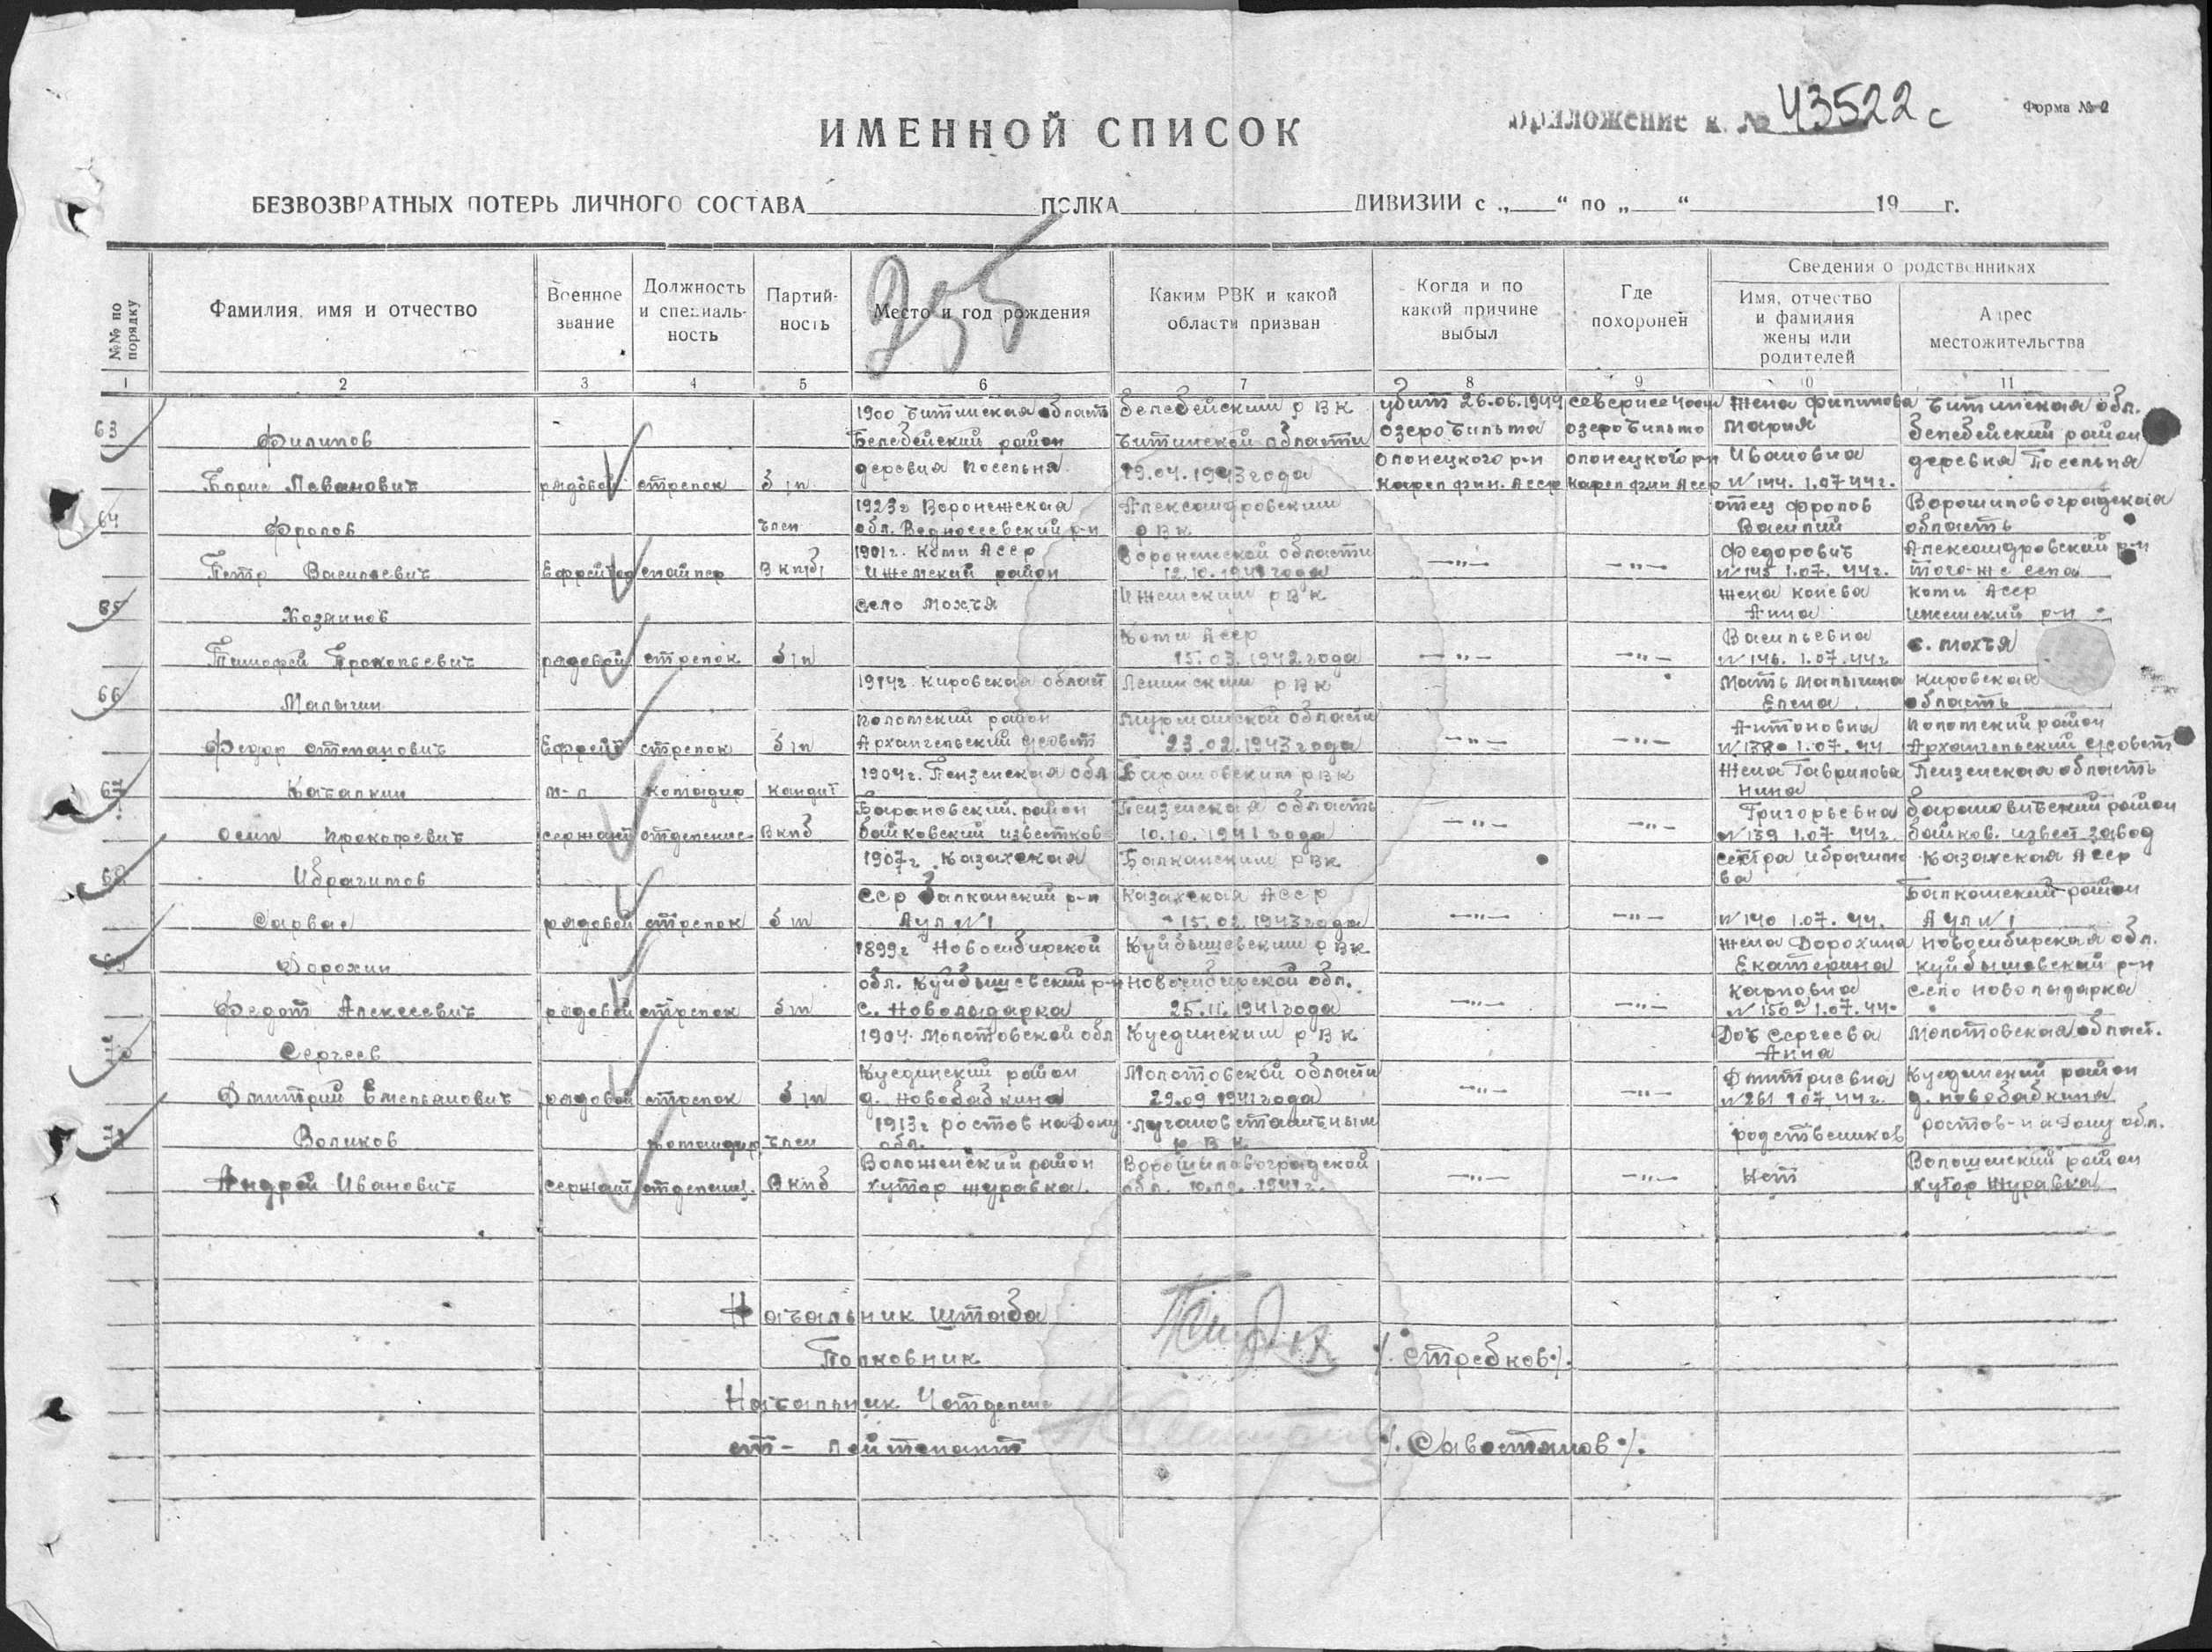 ИМЕННОЙ СПИСОК
Приложение к № 43522 с
Форма № 2
БЕЗВОЗВРАТНЫХ ПОТЕРЬ ЛИЧНОГО СОСТАВА ПОЛКА ДИВИЗИИ с „ “ по „ “ 19 г.
№№ по порядку
Фамилия, имя и отчество
Военное звание
Должность и специальность
Партийность
Место и год рождения
Каким РВК и какой области призван
Когда и по какой причине выбыл
Где похоронен
Сведения о родственниках
Имя, отчество и фамилия жены или родителей
Адрес местожительства
1 2 3 4 5 6 7 8 9 10 11
63 1900 Читинская область Белебейским РВК убит 26.06.1944 севернее 400 м жена Филипова Читинская обл.
Филипов Белебейский район Читинской области озеро Чильма озеро Чильмо Мария белебейский район
деревня Посельня 19.04.1943 года Олонецкого р-н олонецкого р-н Ивановна деревня Посельня
Борис Леванович рядовой стрелок б/п Карел фин. Асср Карел фин Асср N 144. 1.07 44г.
64 1923г Воронежская Александровским отец Фролов Ворошиловоградская
Фролов член обл. р-н РВК Василий область
1901г. Коми Асср Воронежской области Федорович Александровский р-н
Петр Васильевич Ефрейтор снайпер Вкп/б/ Ижемский район 12.10.1941 года N 145 1.07.44г. того-же села
село Мохча Ижемским РВК жена Конева Коми Асср
Хозяинов Анна Ижемский р-н
Коми Асср Васильевна с. Мохчя
Тимофей Прокопьевич рядовой стрелок б/п 15.03.1942 года N 146. 1.07.44г
66 1914г. Кировская област Ленинским РВК Мать Малыгина Кировская
Малыгин Елена область
район Мурманской области Антоновна район
Федор Степанович Ефрейт стрелок б/п Архангельский с/совет 23.02.1943 года N 138 1.07.44 Архангельский с/совет
67 1904г. Пензенская обл Барановским РВК Жена Гаврилова Пензенская область
Качалкин м-л командир кандит Нина
Барановский район Пензенская область Григорьевна барановичский район
Осип Прокофьевич сержант отделение Вкпб башковский известков 10.10.1941 года N 139 1.07 44г. башков. извест завод
68 1907г. Казахская Балканским РВК сестра Ибрагимова Казахская Асср
Ибрагимов
сср Балканский р-н Казахская Асср Балкашский район
Сарвас рядовой стрелок б/п Аул N 1 15.02.1943 года N 140 1.07.44. Аул N 1
1899г Новосибирской Куйбышевским РВК Жена Дорохина Новосибирская обл.
Дорохин Екатерина куйбышевский р-н
обл. Куйбышевский р-н Новосибирской обл. Карповна село Новолыдарка
Федот Алексеевич рядовой стрелок б/п с. Новолыдарка 25.11.1941 года N 150 1.07.44.
1904. Молотовской обл Куединским РВК Доч Сергеева Молотовская област.
Сергеев Анна
Куединский район Молотовской области Дмитриевна Куединский район
Дмитрий Емельянович рядовой стрелок б/п д. Новобабкина 29.09 1941 года N 261 1.07.44г. д. новобабкина
1913г ростов на Дону ростов-на Дону обл.
Воликов командир член обл. РВК родствеников
Волошенский район Ворошиловоградской Волошенский район
Андрей Иванович сержант отделения. Вкпб хутор журавка. обл. 1941г. Нет хутор Журавка
Начальник штаба
Полковник /. Стребков ./.
Начальник 4 отделение
ст- лейтенант /. Савостянов ./.